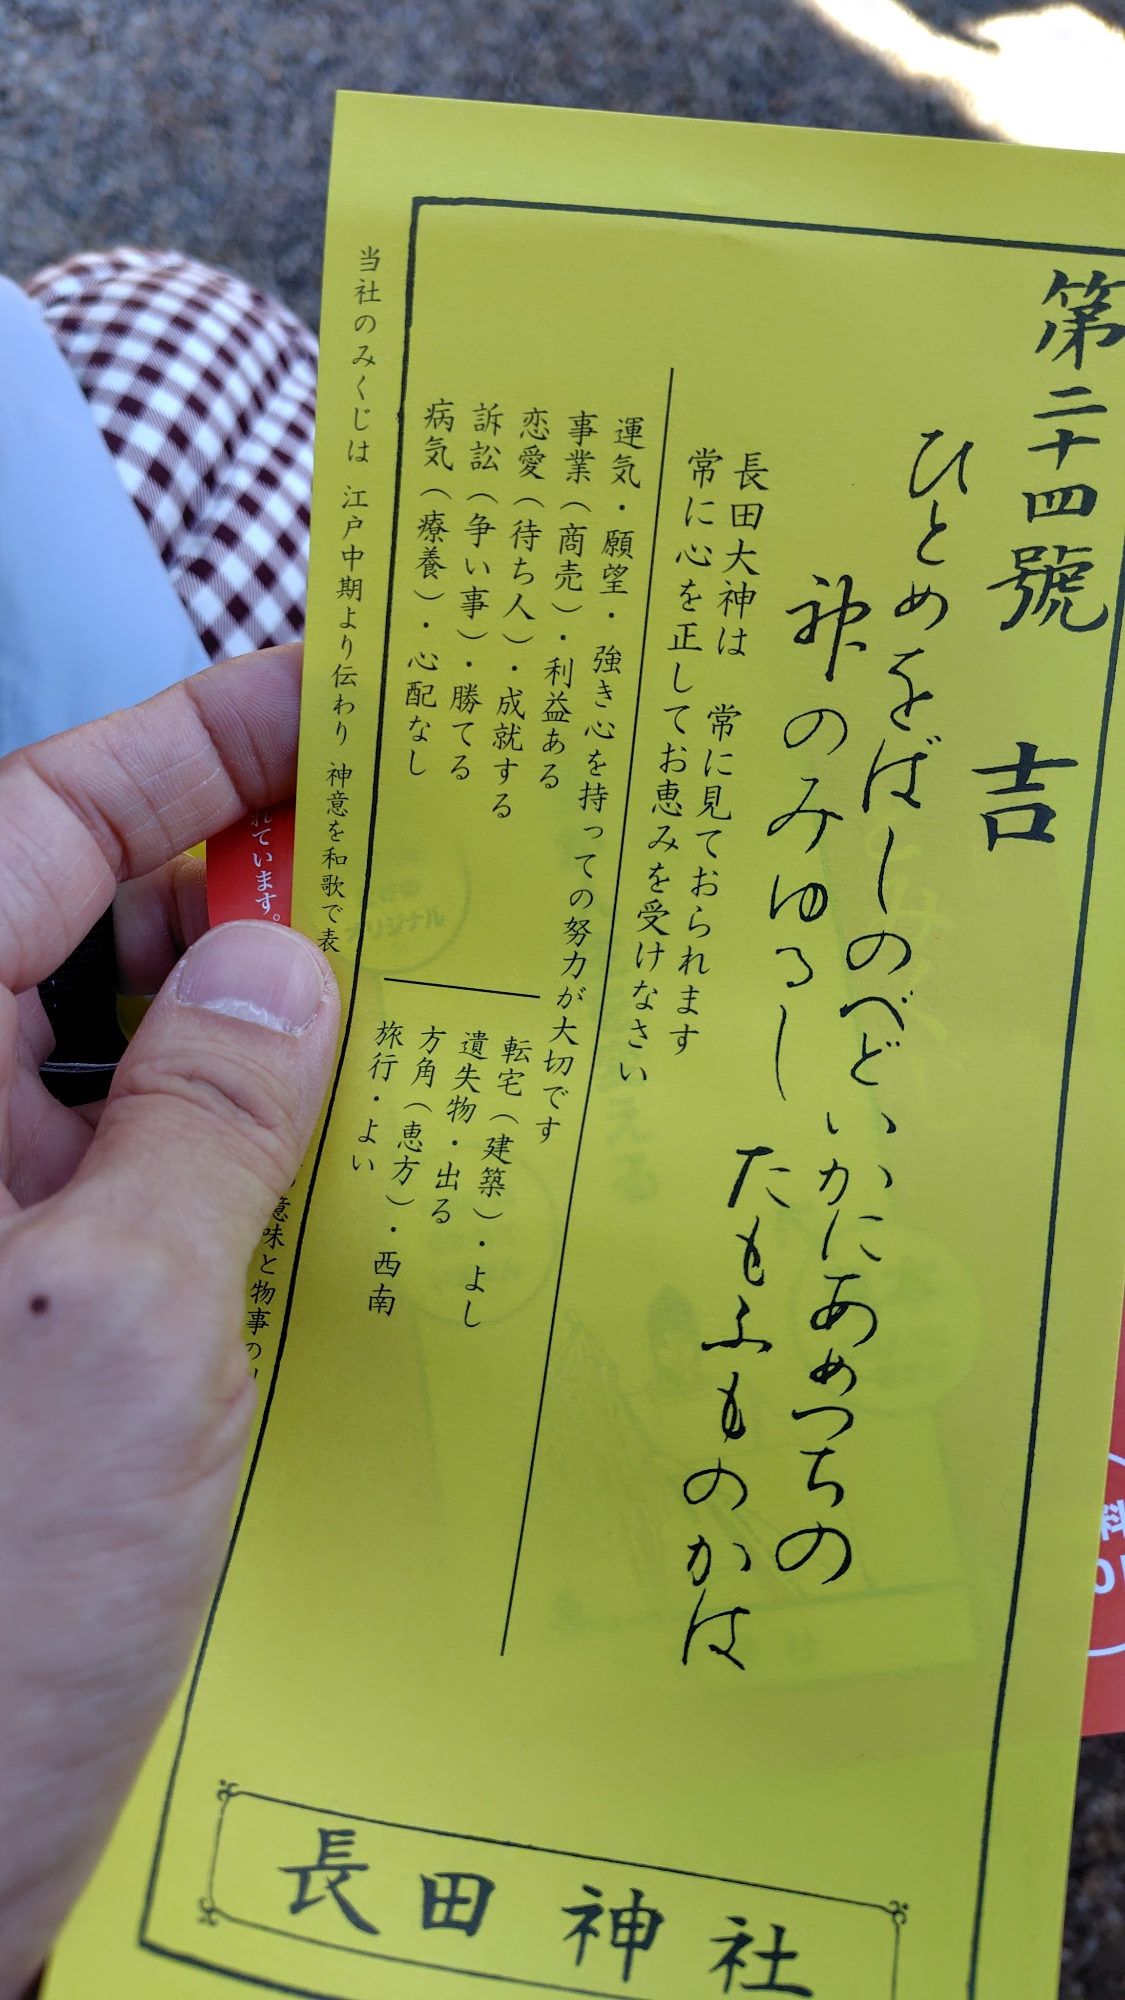 第二十四號 吉
ひとめをばしのべどいかにあめつちの
神のみゆるし たもふものかは
長田大神は 常に見ておられます
常に心を正してお恵みを受けなさい
運気・願望・強き心を持っての努力が大切です
事業(商売)・利益ある
恋愛(待ち人)・成就する
訴訟(争い事)・勝てる
病気(療養)・心配なし
転宅(建築)・よし
遺失物・出る
方角(恵方)・西南
旅行・よい
当社のみくじは 江戸中期より伝わり 神意を和歌で表
意味と物事の
長田神社
れています。
科